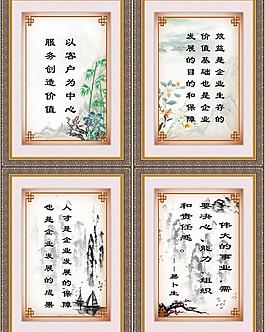 以客户为中心
服务创造价值
效益是企业生存的
价值基础也是企业
发展的目的和保障
人才是企业发展的保障
也是企业发展的成果
伟大的事业,需
要决心,能力,组织
和责任感。
——易卜生